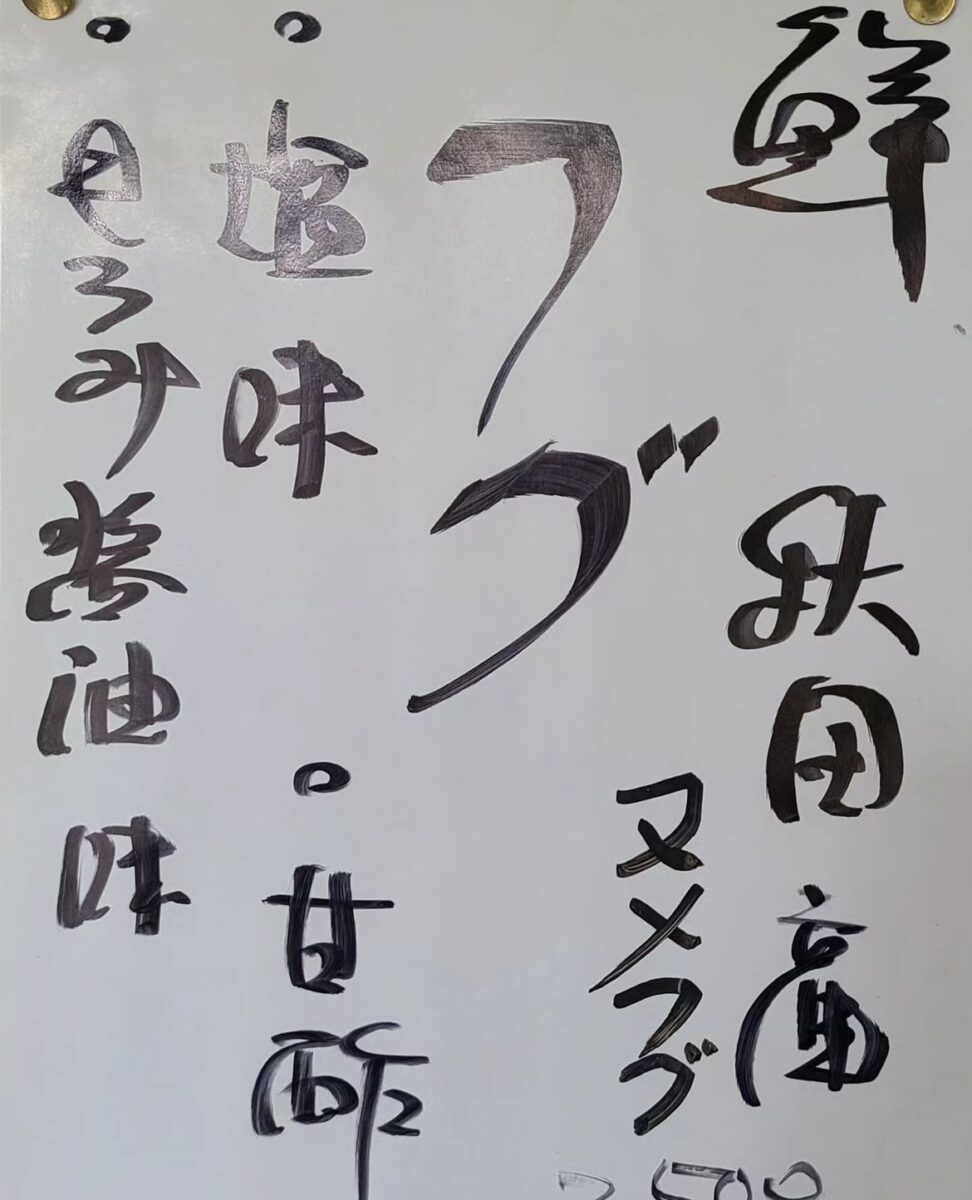 鮮
秋田産
ヌメフグ
フグ
・塩味
・甘酢
・もろみ醤油味